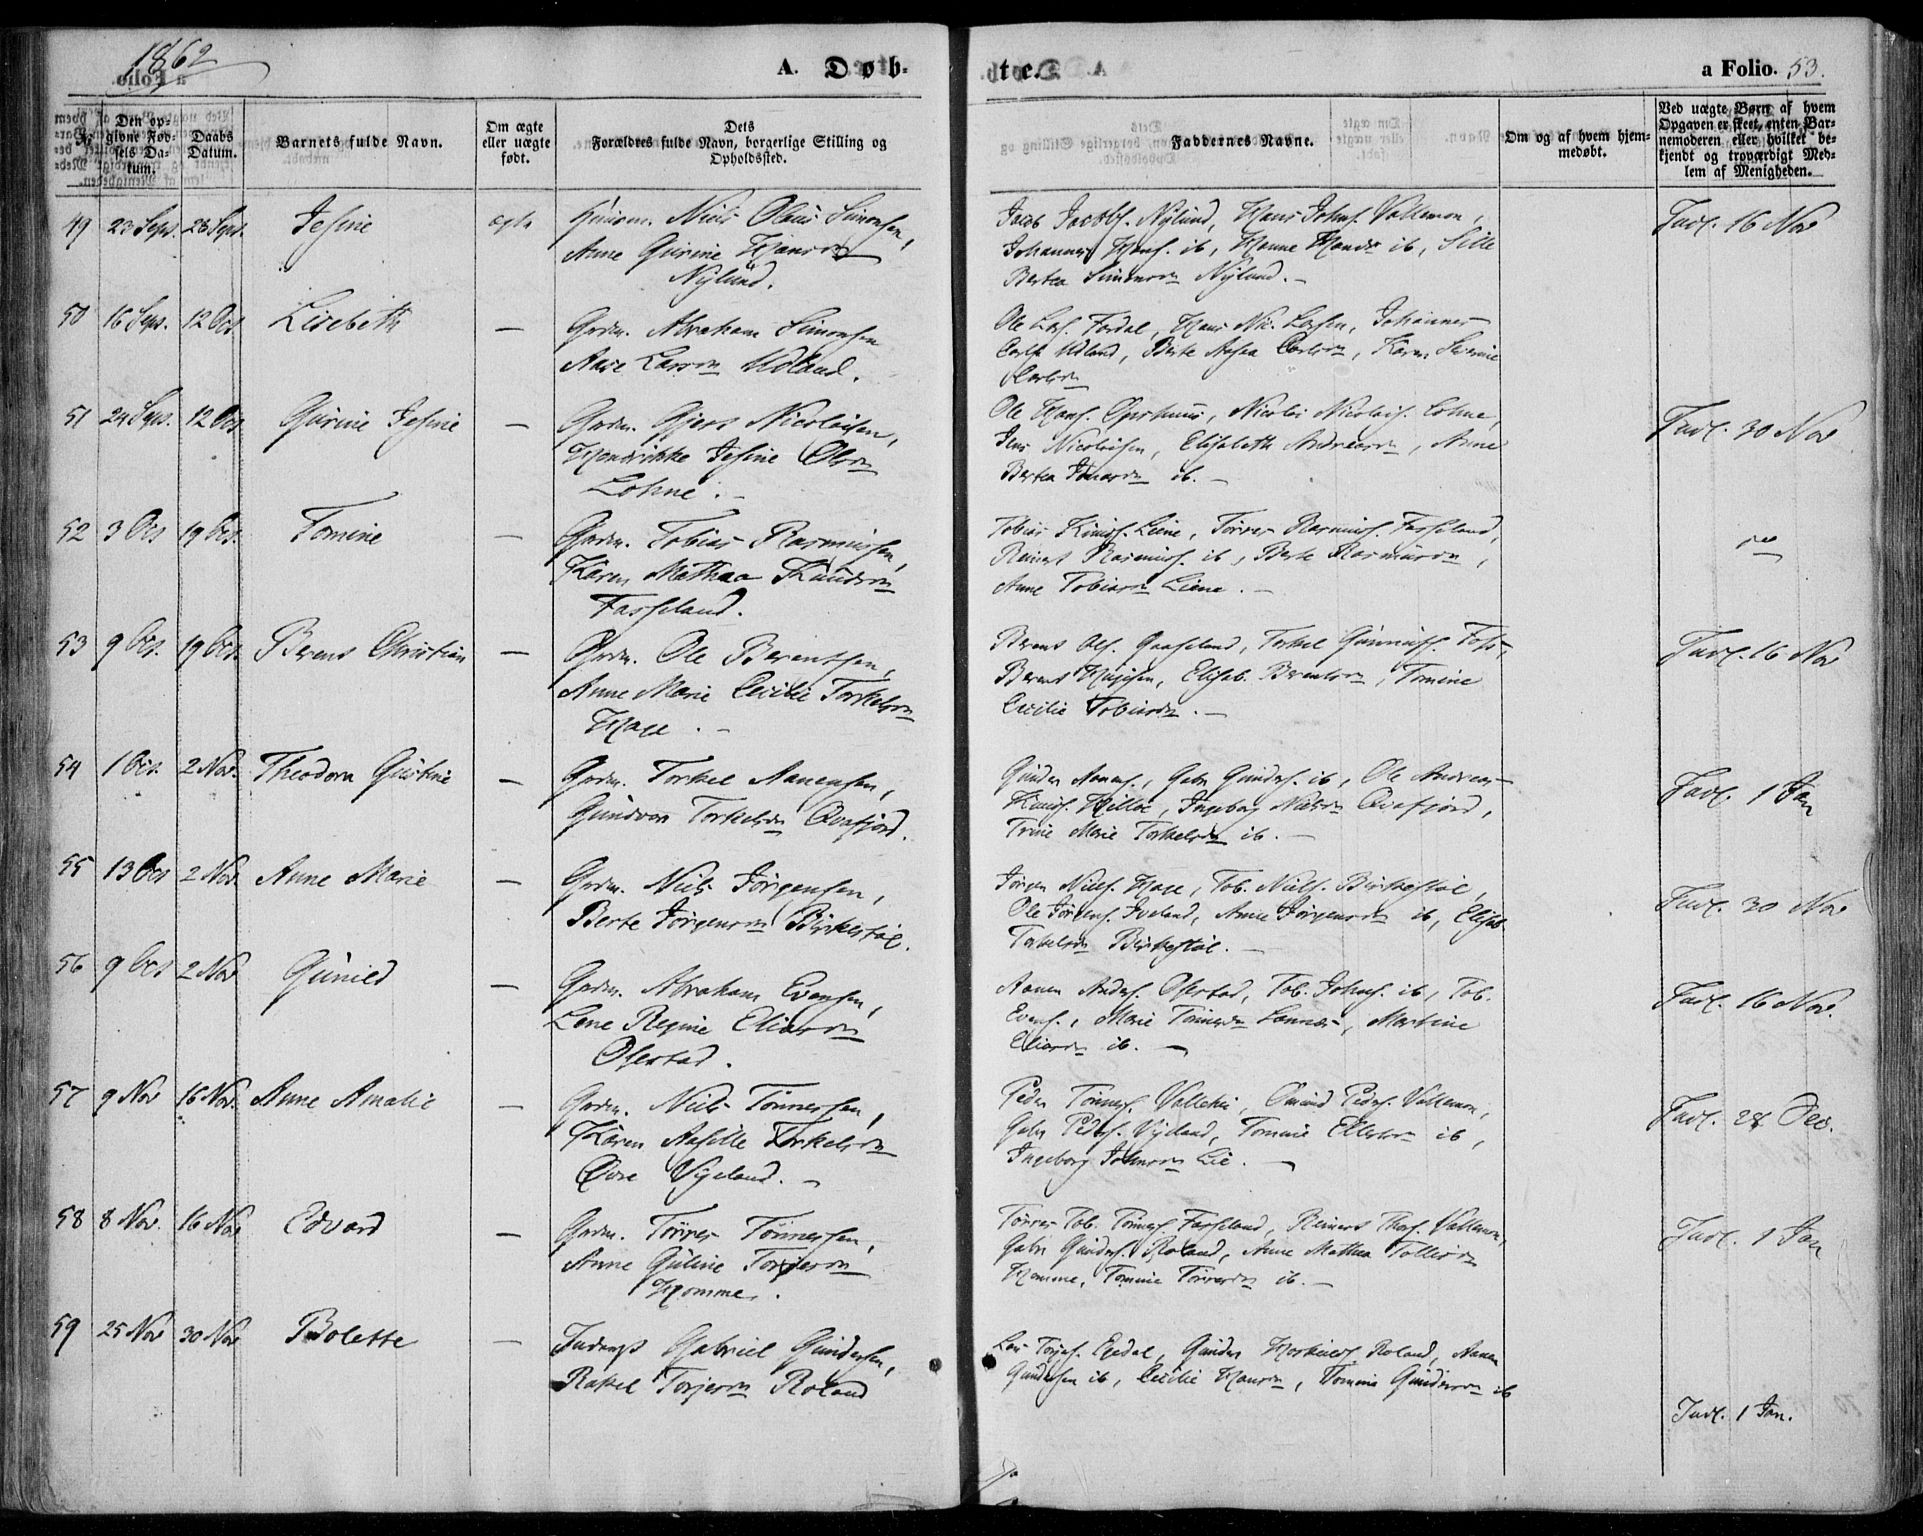 1862
A. Døb-
te.
a Folio. 53.
Den opgivne Fødsels Datum.
Daabs Datum.
Barnets fulde Navn.
Om ægte eller uægte født.
Dets Forældres fulde Navn, borgerlige Stilling og Opholdssted.
Faddernes Navne.
Om og af hvem hjemmedøbt.
Ved uægte Børn af hvem Opgaven er skeet, enten Barnemoderen eller hvilket bekjendt og troværdigt Medlem af Menigheden.
49 23 Sept. 28 Sept. Jesine ægte Niels Olaus Simonsen,
Anne Gurine Hansdn
Nylund.
Jacob Jacobs. Nylund, Hans Johns. Vallemon,
Johannes Hans. ib, Hanne Hansdn ib, Sille
Bertea Simonsdn Nylund.
Indl. 16 Nov
50 16 Sept. 12 Oct Lisebeth — Grdm. Abraham Simonsen
Aase Larsdn Udland.
Ole Lars. Fardal, Hans Nic. Larsen, Johannes
Carls. Udland, Birte Carlsdn, Karen Severine
Carlsdn
51 24 Sept. 12 Oct Gurine Jesine — Grdm. Gjert Nicolaisen,
Hendrikke Jesine Olsdn
Lohne.
Ole Hans. Nicolai Nicolais. Lohne,
Jens Nicolaisen, Elisabeth Andreasdn, Anne
Bertea ib.
Indl. 30 Nov
52 3 Oct 19 Oct. Tomine — Grdm. Tobias Rasmussen,
Karen Mathea Knudsdn
Fasseland.
Tobias Knuds. Leine, Tørres Rasmus. Fasseland,
Reinert Rasmus. ib, Berte Rasmusdn,
Anne Tobiasdn Leine.
53 9 Oct. 19 Oct. Berent Christian — Grdm. Ole Berentsen,
Anne Marie Cecilie Torkelsdn
Have.
Berent Ols. Torkel Foss,
Berent Elisab. Berentsdn, Tomine
Cecilie Tobiasdn.
Indl. 16 Nov
54 1 Oct. 2 Nov. Theodora Gustine — Grdm. Torkel Aanensen,
Gundvor Torkelsdn Qvafjord.
Gunder Aanens., Gabr Gunders. ib, Ole Andreas
Knuds. Hille, Ingeborg Nielsdn Qvafjord,
Trine Marie Torkelsdn ib.
Indl. 1 Jan
55 13 Oct 2 Nov. Anne Marie — Grdm. Niels Jørgensen,
Berte Jørgensdn Birkestøl.
Jørgen Niels. Have, Tob. Niels. Birkestøl,
Ole Jørgens. Anne Jørgensdn ib, Elisab.
Torkelsdn Birkestøl.
Indl. 30 Nov
56 9 Oct 2 Nov Gunild — Grdm. Abraham Evensen,
Lene Regine Eliasdn
Ofestad.
Aanen Anders. Ofestad, Tob. Johns. ib, Tob.
Evens., Marie Martine
Eliasdn ib.
Indl. 16 Nov.
57 9 Nov 16 Nov. Anne Amalie — Grdm. Niels Tønnessen,
Karen Aasille Torkelsdn
Øvre Vigeland.
Peder Tønnes. Omund Peders. Vallemon,
Gabr Peders. Vigeland, Tomine ib,
Ingeborg Lie.
Indl. 28 Dec.
58 8 Nov. 16 Nov Edvard — Grdm. Tørres Tønnessen,
Anne Guline Torjersdn
Homme.
Tørres Tob. Tønnes. Fasseland, Reinert Vallemon,
Gabr Gunders. Roland, Anne Mathea
Homme, Tomine Tørresdn ib.
Indl. 1 Jan
59 25 Nov 30 Nov Bolette — Inderst Gabriel Gundersen,
Rakel Torjersdn Roland
Lars Torjes. Egedal, Gunder Roland, Aanen
Gundersen ib, Cecilie Hansdn, Tomine Gundersdn ib
Indl. 1 Jan.